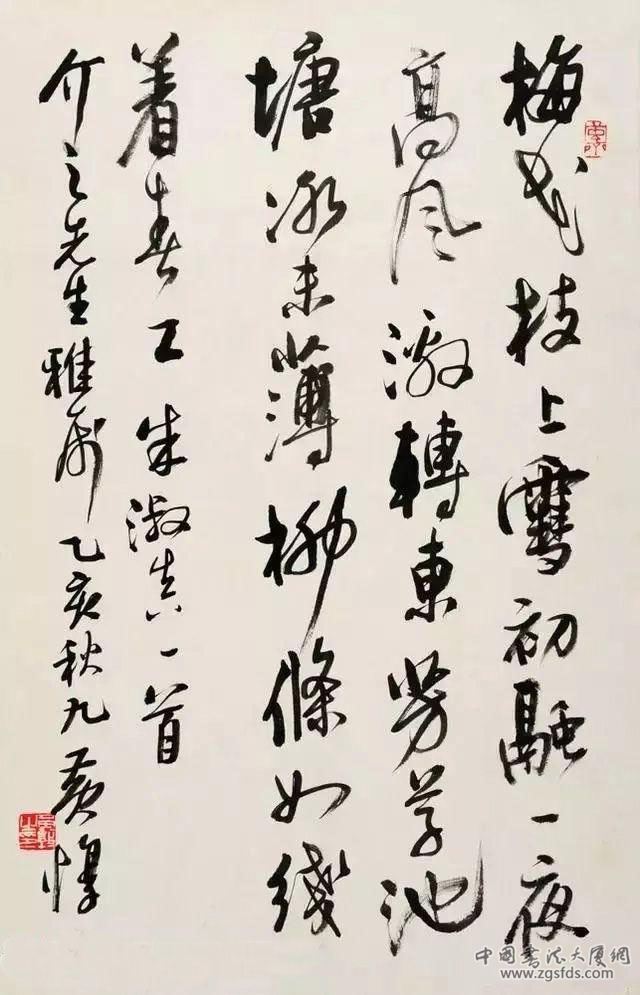 梅花枝上雪初融一夜
高風激轉東芳草池
塘冰未薄柳條如綫
着春工朱淑真一首
介之先生雅屬乙亥秋九黄惇
中國書法大廈網
www.zgsfds.com